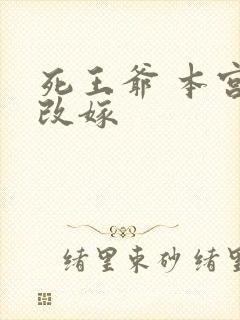 死王爷 本宫
改嫁
绪里束砂 绪里